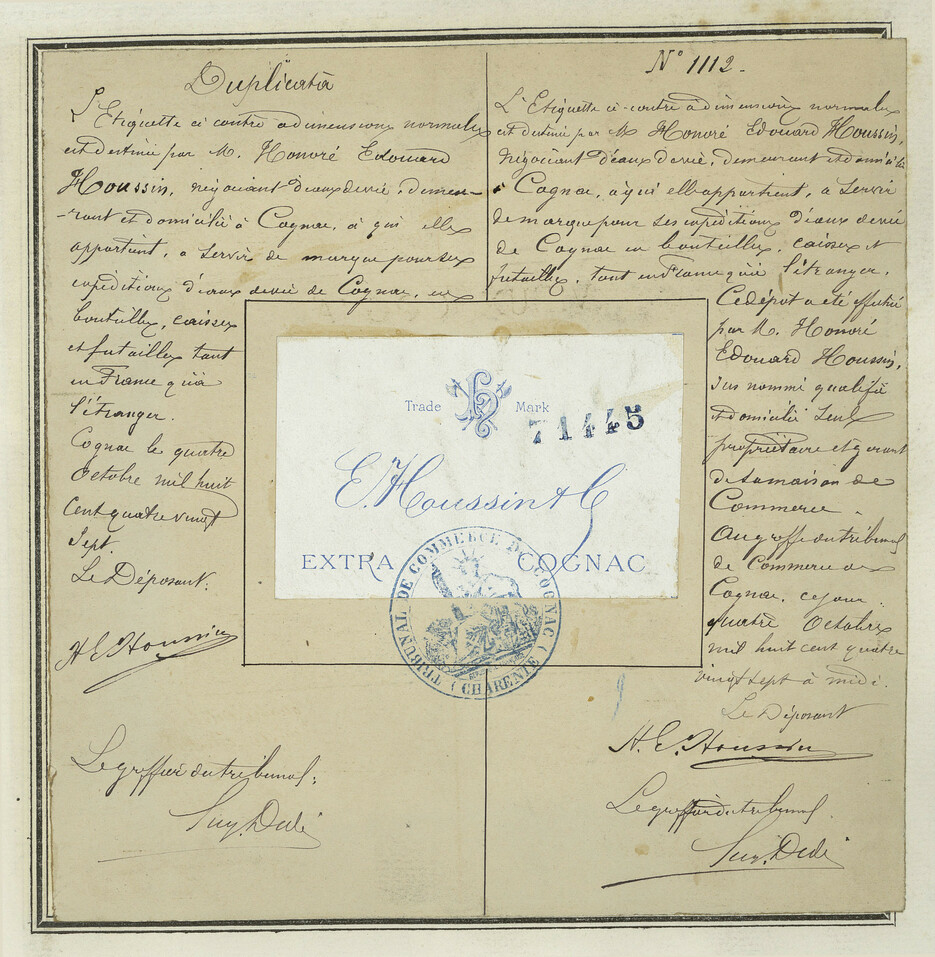 Duplicata
L'Etiquette ci contre a dimensions normales
est destinée par M. Honoré Edouard
Houssin, négociant d'eaux de vie, demeu-
-rant et domicilié à Cognac, à qui elle
appartient, a servir de marque pour ses
expéditions d'eaux de vie de Cognac, en
bouteilles, caisses
et futailles tant
en France qu'à
l'étranger.
Cognac le quatre
Octobre mil huit
cent quatre vingt
Sept.
Le Déposant:
H E Houssin
Le greffier du tribunal:
N° 1112.
L'Etiquette ci-contre a dimensions normales
est destinée par M Honoré Edouard Houssin,
négociant d'eaux de vie, demeurant et domicilié
à Cognac, à qui elle appartient, a servir
de marque pour ses expéditions d'eaux de vie
de Cognac en bouteilles, caisses et
futailles, tant en France qu'à l'étranger.
Ce dépot a été effectué
par M. Honoré
Edouard Houssin,
sus nommé qualifié
et domicilié seul
propriétaire et gérant
de sa maison de
Commerce.
Au greffe du tribunal
de Commerce de
Cognac, ce jour
quatre Octobre
mil huit cent quatre
vingt sept à midi.
Le Déposant
H. E. Houssin
Le greffier du tribunal.
Trade Mark
71445
E. Houssin & C
EXTRA COGNAC
TRIBUNAL DE COMMERCE DE COGNAC
(CHARENTE)